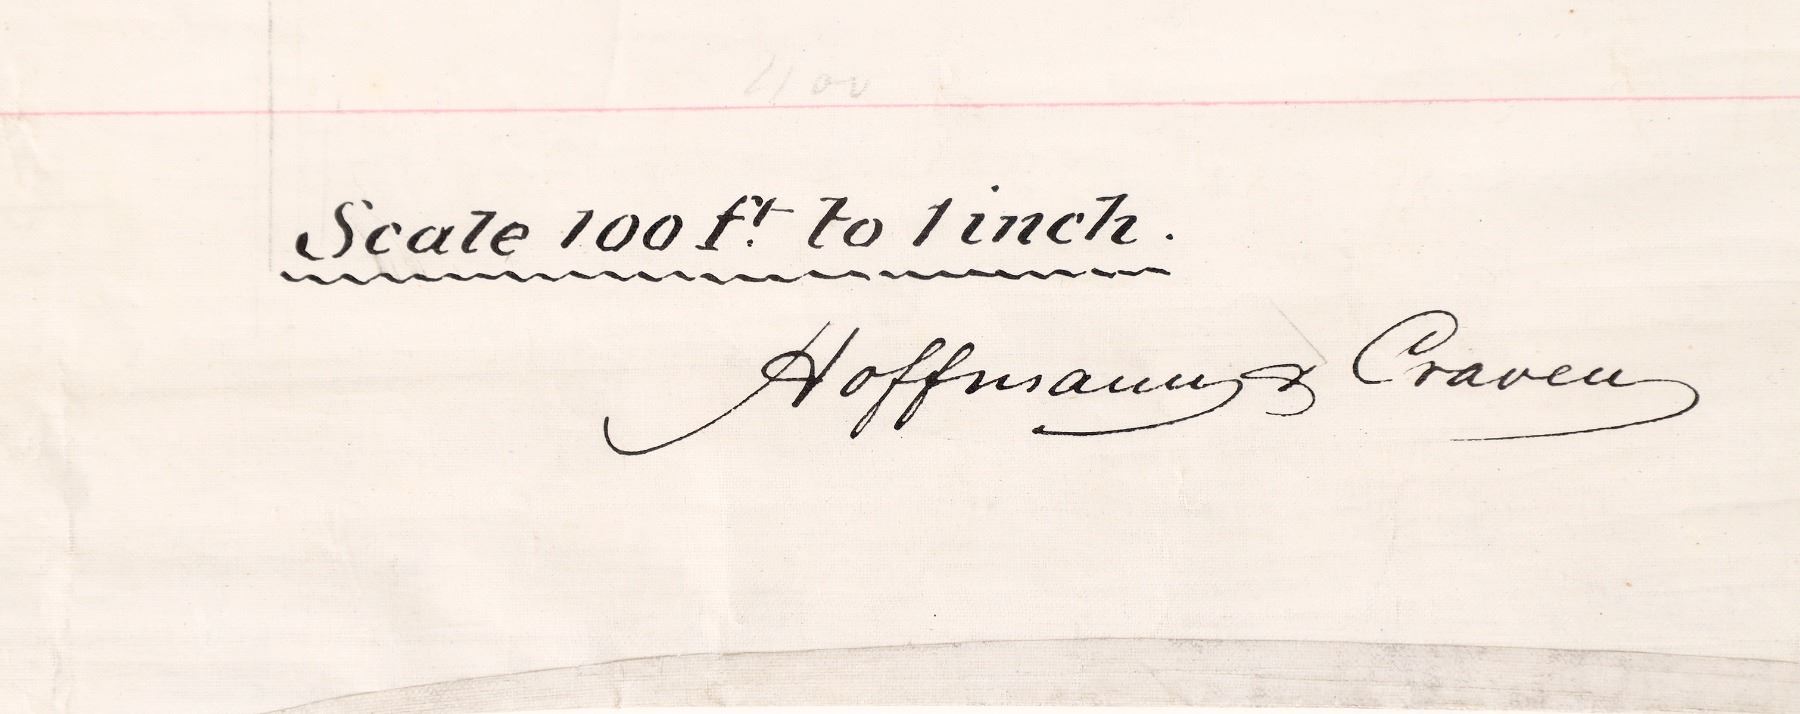 Scale 100 ft. to 1 inch.
Hoffmann & Craven